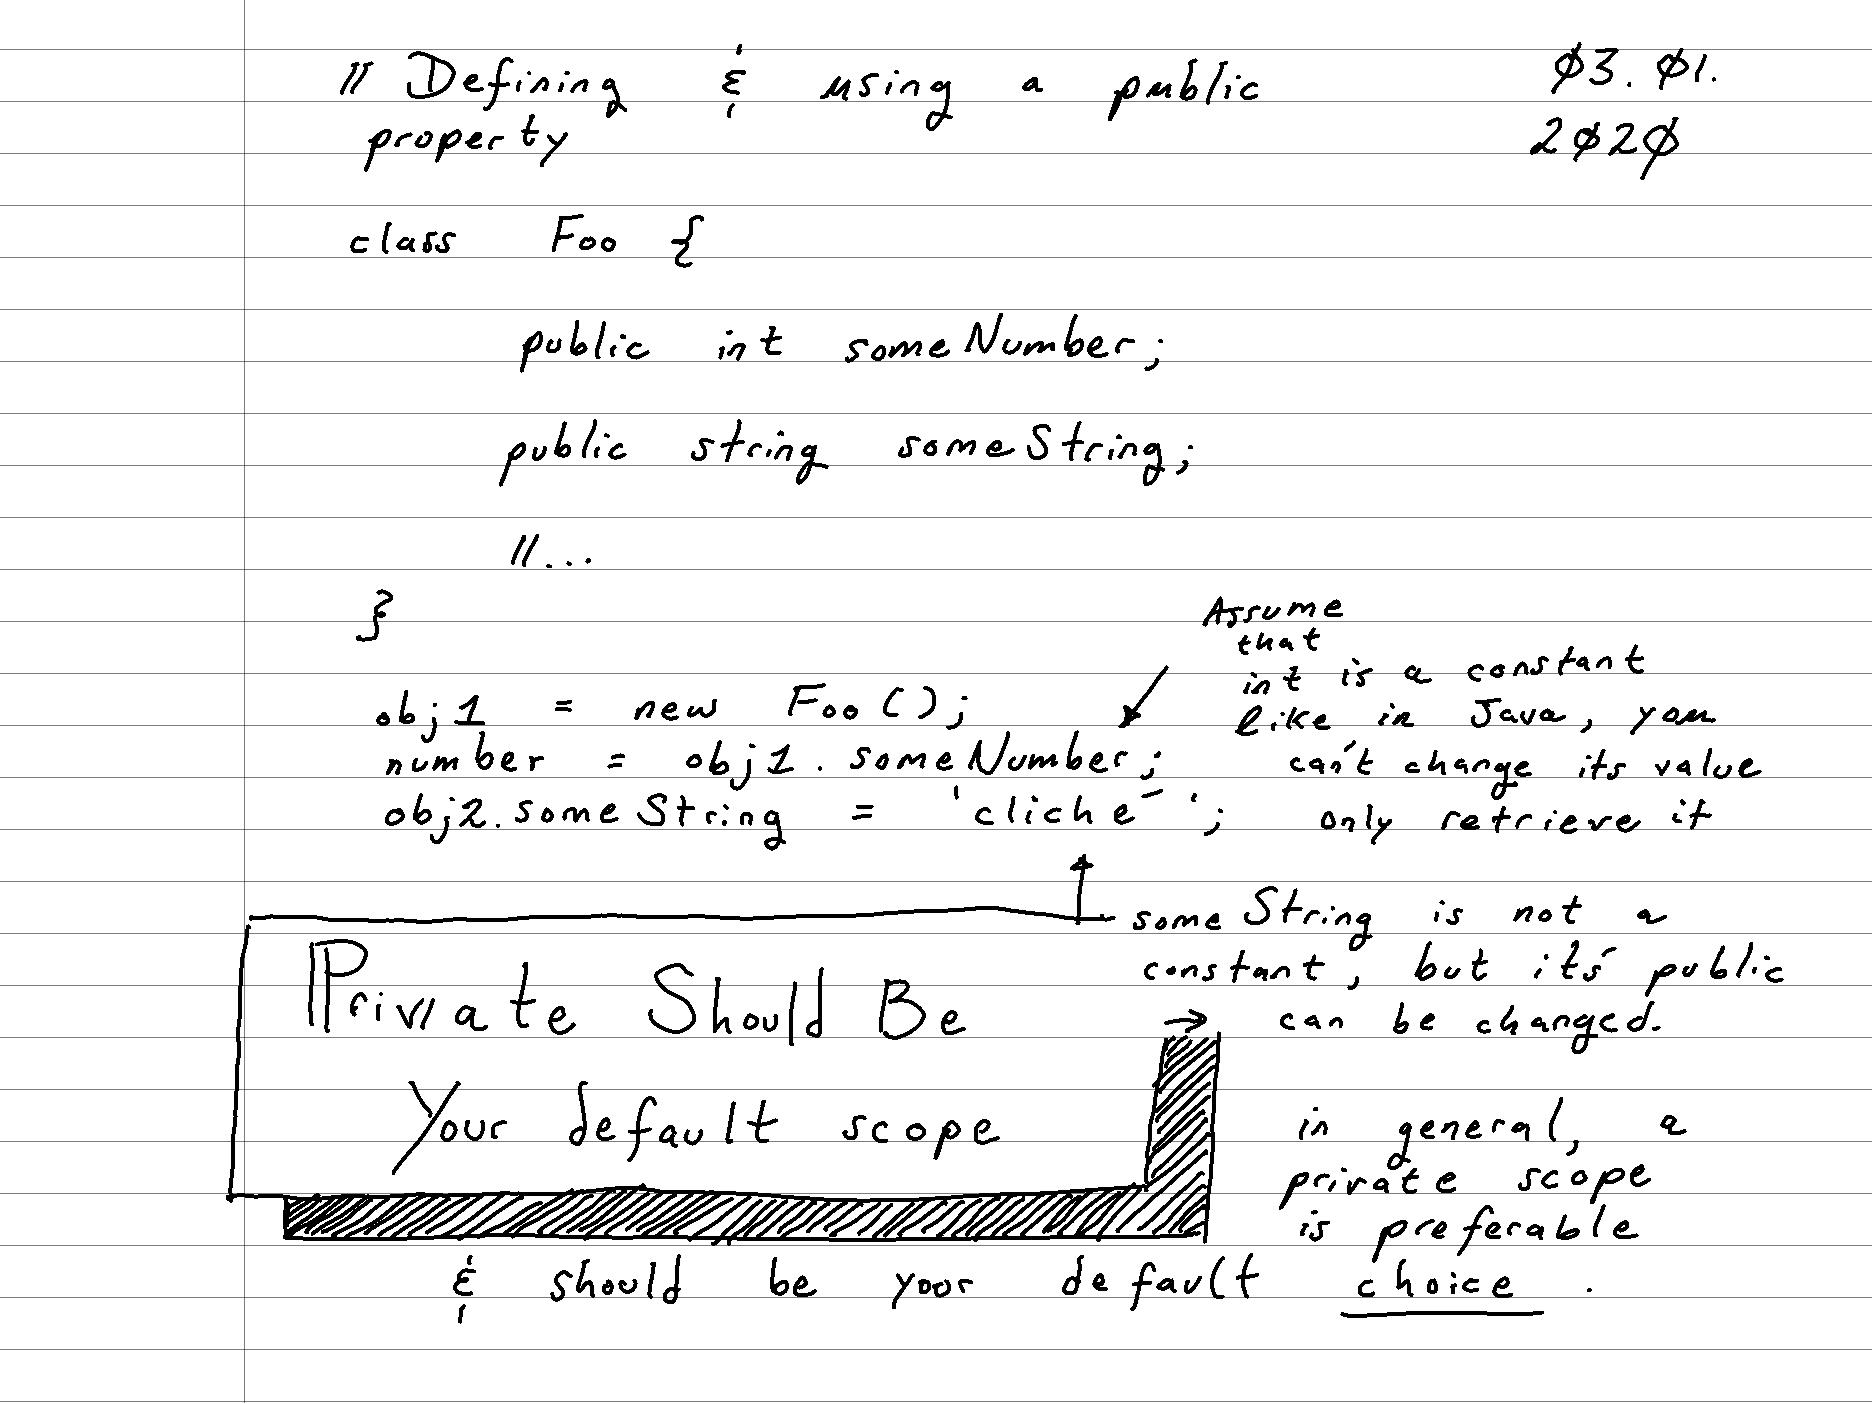 // Defining & using a public
property
03.01.
2020
class Foo {
public int someNumber;
public string someString;
//...
}
obj1 = new Foo();
number = obj1.someNumber;
obj2.someString = 'cliché';
Assume
that
int is a constant
like in Java, you
can't change its value
only retrieve it
someString is not a
constant, but it's public
→ can be changed.
Private Should Be
Your default scope
in general, a
private scope
is preferable
& should be your default choice.